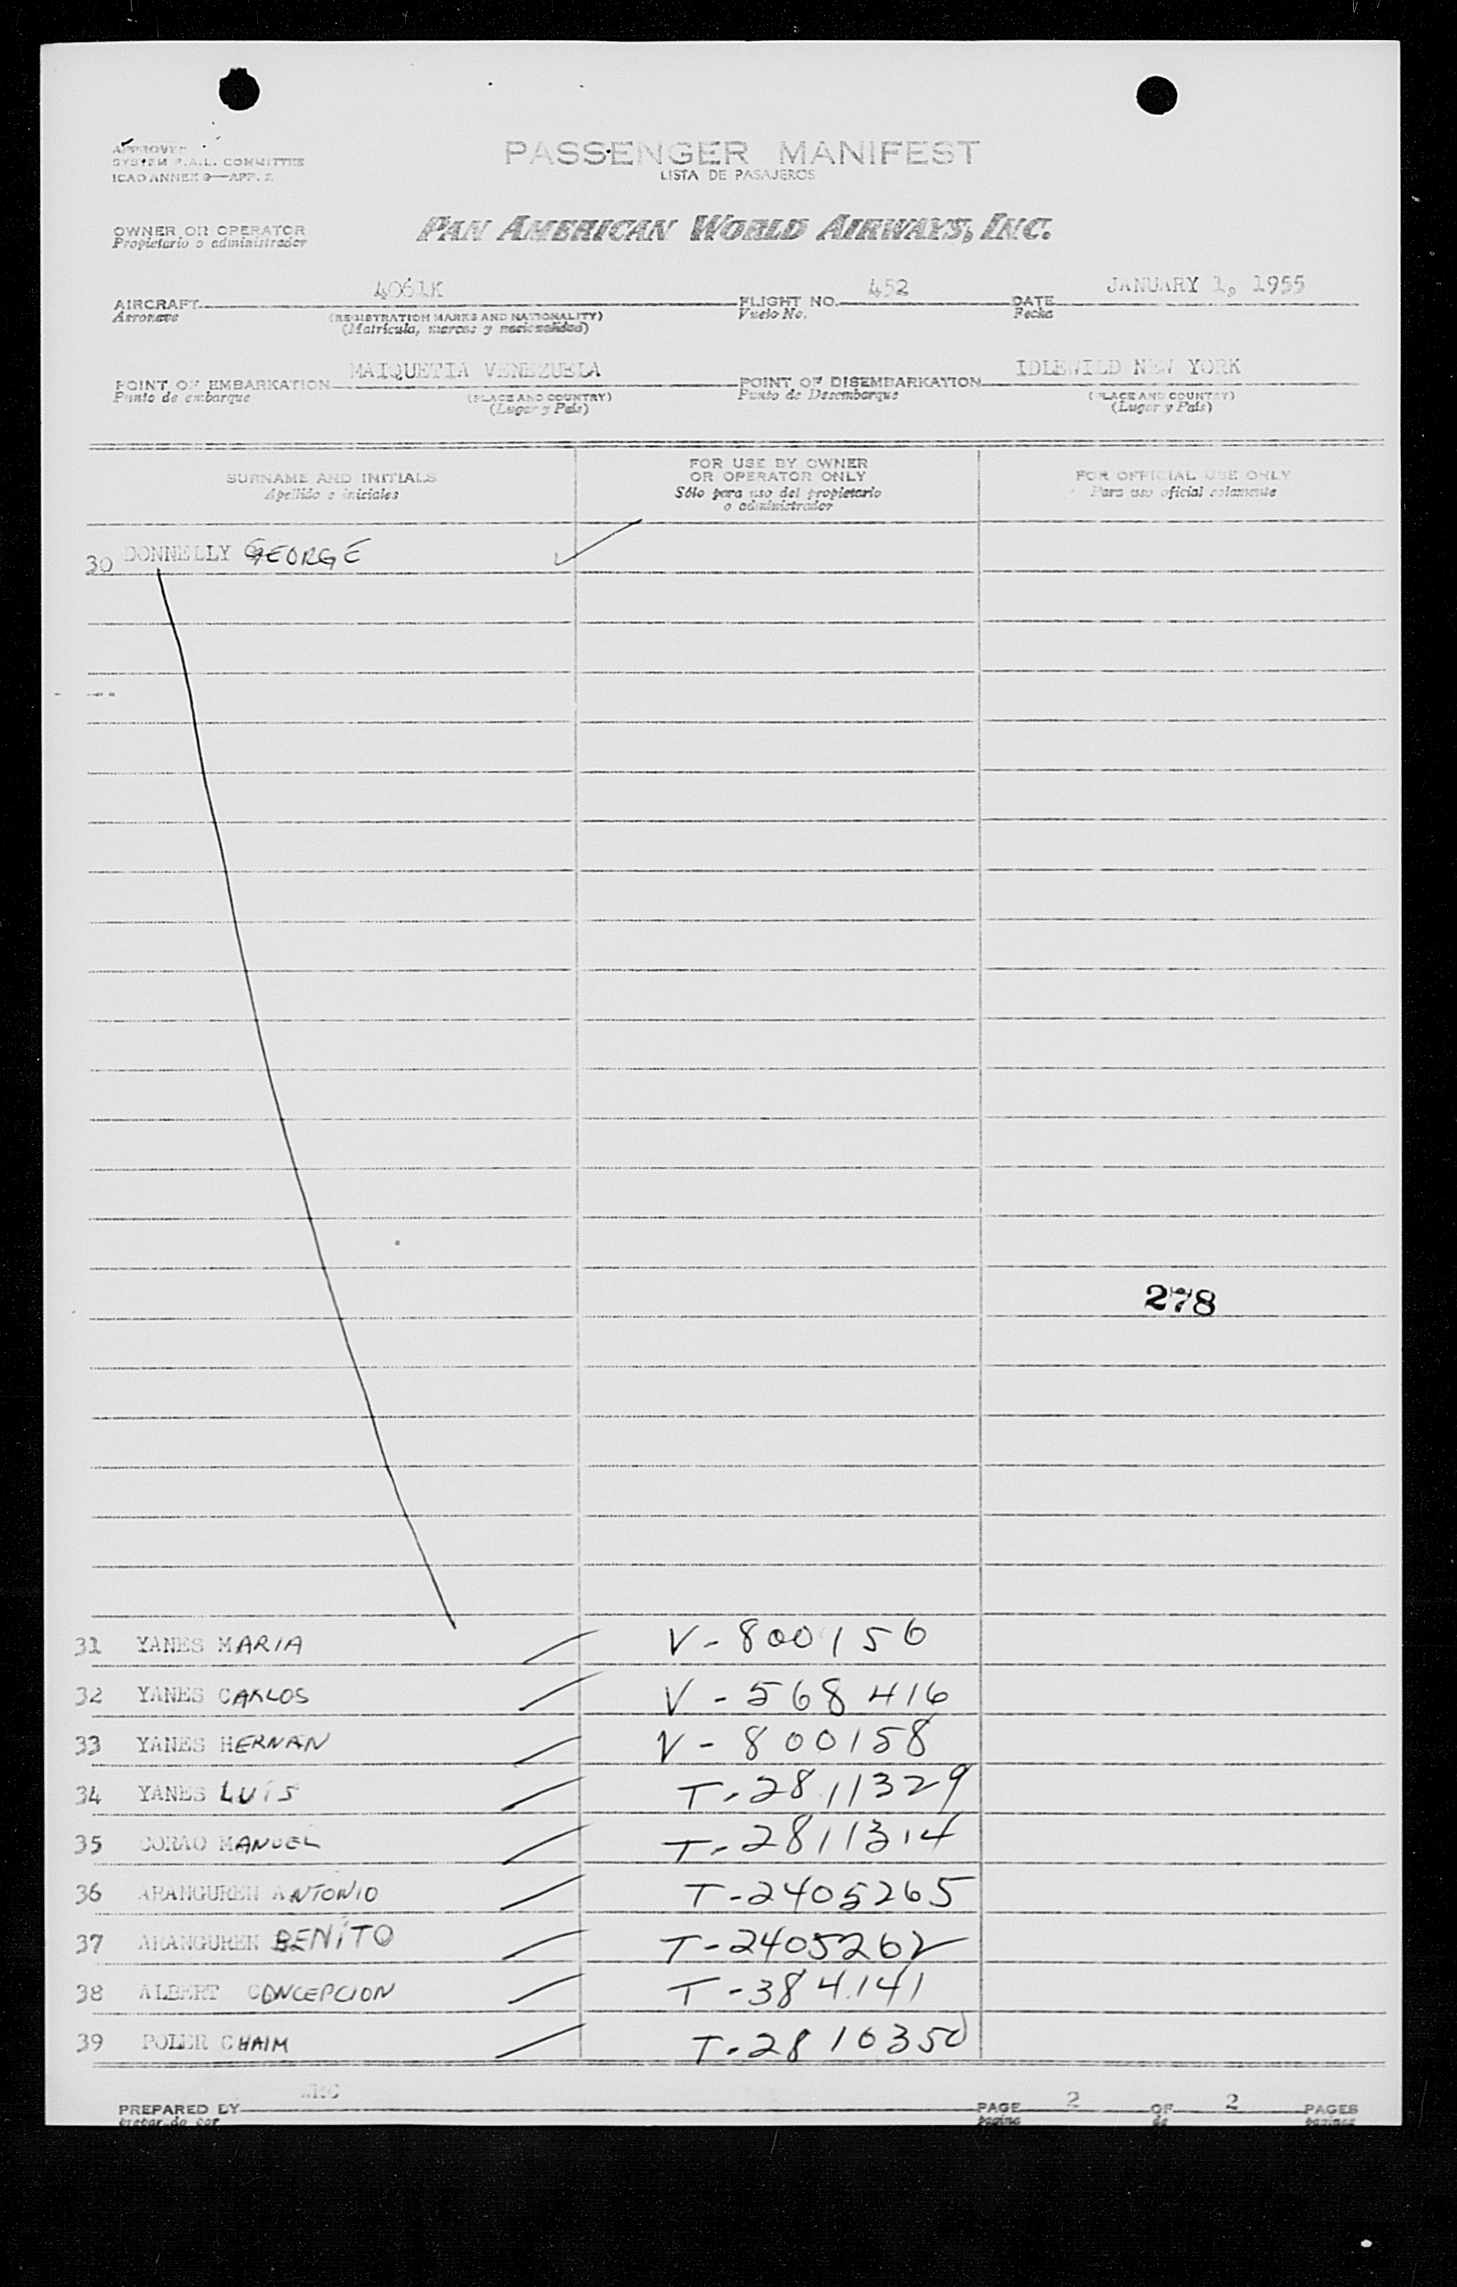 APPROVED
SYSTEM F.A.L. COMMITTEE
ICAO ANNEX 9—APP. 2
PASSENGER MANIFEST
LISTA DE PASAJEROS
OWNER OR OPERATOR
Propietario o administrador
PAN AMERICAN WORLD AIRWAYS, INC.
AIRCRAFT 4061K FLIGHT NO. 452 DATE JANUARY 1, 1955
Aeronave (REGISTRATION MARKS AND NATIONALITY) Vuelo No. Fecha
(Matrícula, marcas y nacionalidad)
POINT OF EMBARKATION MAIQUETIA VENEZUELA POINT OF DISEMBARKATION IDLEWILD NEW YORK
Punto de embarque (PLACE AND COUNTRY) Punto de Desembarque (PLACE AND COUNTRY)
(Lugar y País) (Lugar y País)
SURNAME AND INITIALS FOR USE BY OWNER OR OPERATOR ONLY FOR OFFICIAL USE ONLY
Apellido e iniciales Sólo para uso del propietario o administrador Para uso oficial solamente
30 DONNELLY GEORGE
278
31 YANES MARIA V-800156
32 YANES CARLOS V-568416
33 YANES HERNAN V-800158
34 YANES LUIS T-2811329
35 CORAO MANUEL T-2811314
36 ARANGUREN ANTONIO T-2405265
37 ARANGUREN BENITO T-2405262
38 ALBERT CONCEPCION T-384141
39 POLER CHAIM T-2810350
PREPARED BY PAGE 2 OF 2 PAGES
página de páginas